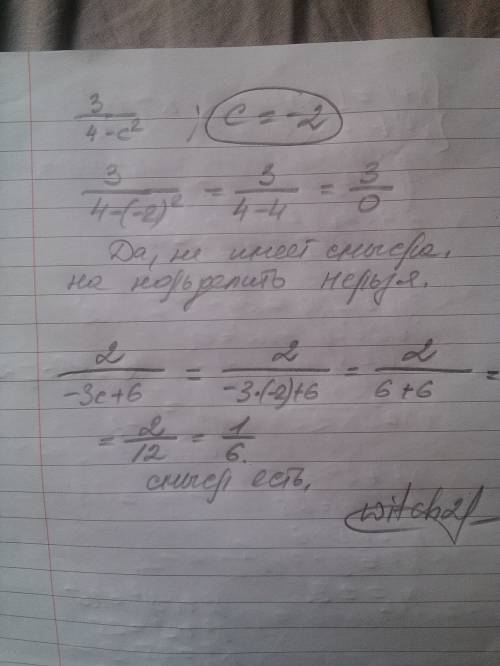 3/(4-c²) ; c = -2
3/(4-(-2)²) = 3/(4-4) = 3/0
Да, не имеет смысла,
на ноль делить нельзя.
2/(-3c+6) = 2/(-3·(-2)+6) = 2/(6+6) =
= 2/12 = 1/6.
смысл есть,
witch21